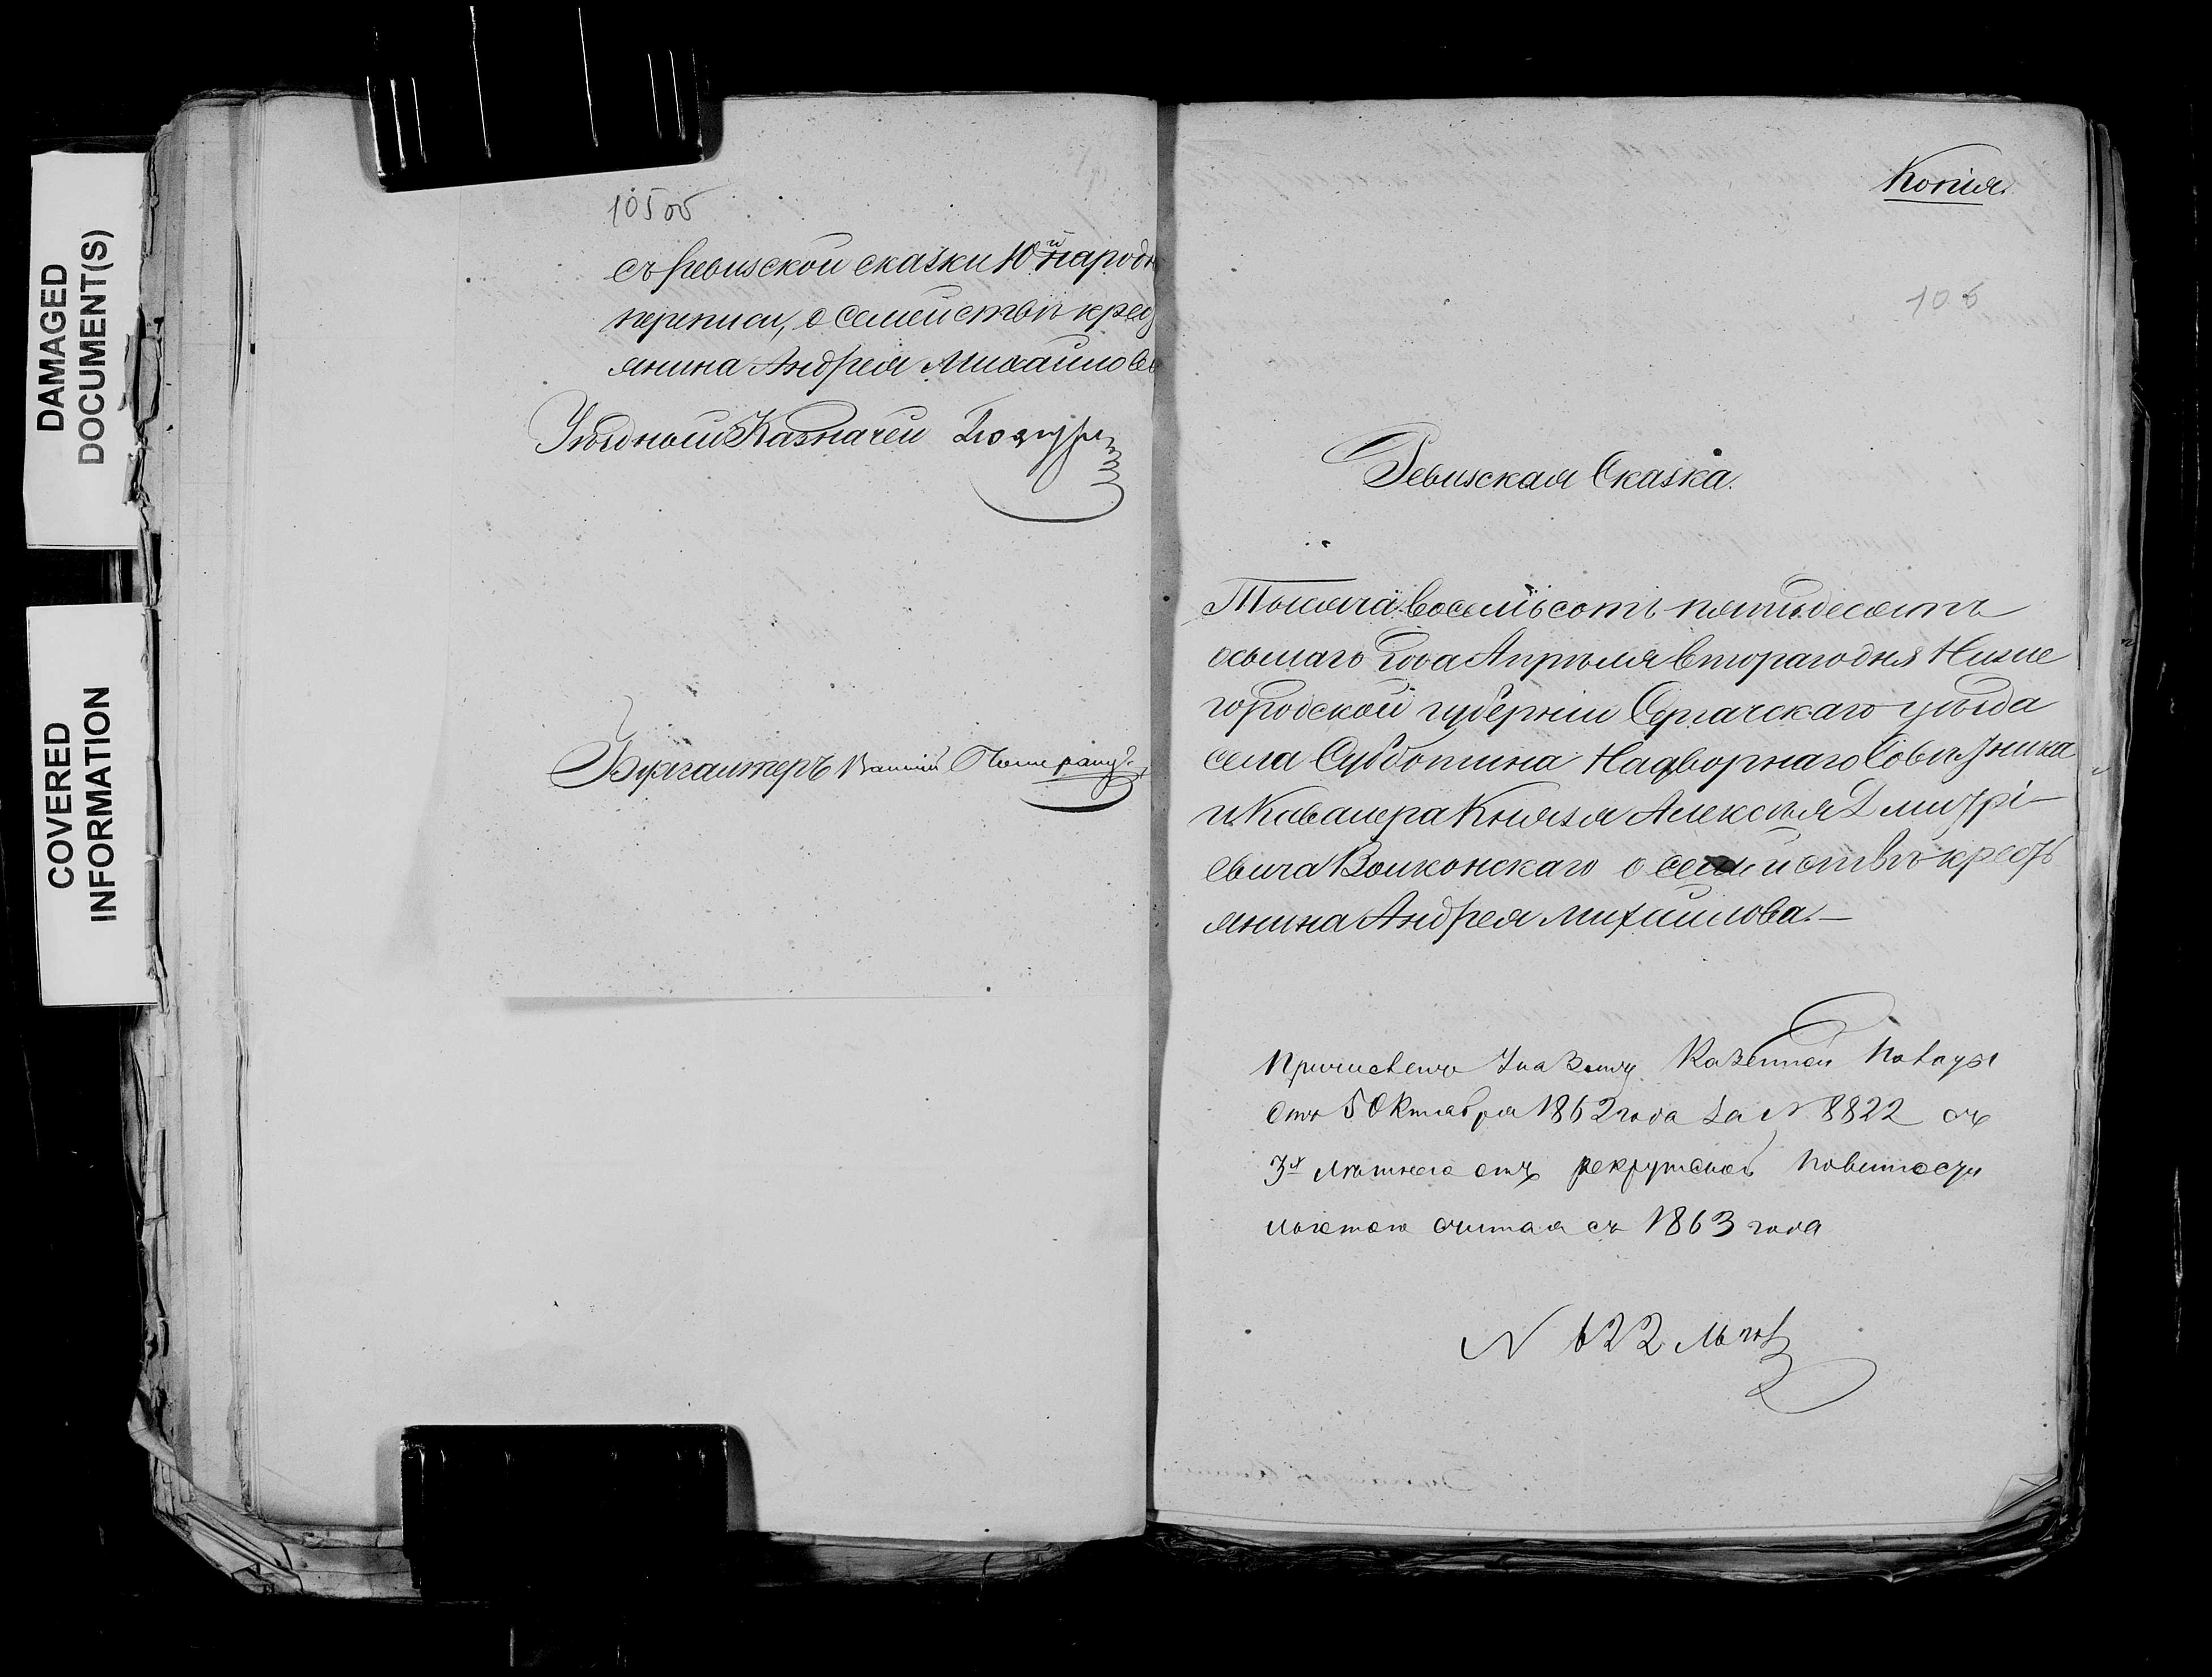 DAMAGED
DOCUMENT(S)
COVERED
INFORMATION
105об
съ ревизской сказки 10й народн
переписи, о семействѣ крест
янина Андрея Михайлов
Уѣздный Казначей
Бухгалтеръ
Копія.
106
Ревизская Сказка.
Тысяча восемьсотъ пятьдесятъ
осьмаго года Апрѣля втораго дня Ниже
городской губерніи Сергачскаго уѣзда
села Субботина Надворнаго Совѣтника
и Кавалера Князя Алексѣя Дмитрі-
евича Волконскаго о семействѣ кресть
янина Андрея Михайлова.—
Причисленъ Указомъ Казенной Палаты
отъ 5 Октября 1862 года за № 8822 съ
3х лѣтнею отъ рекрутской повинности
льготою считая съ 1863 года
№ 622